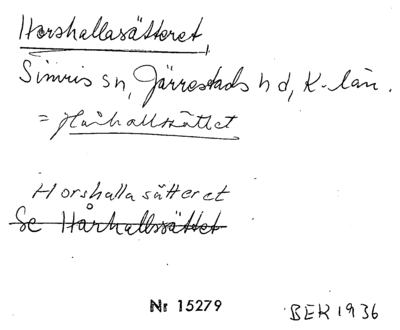 Horshallasätteret
Simris sn, Järrestads hd, K-län.
= Hårhallssättet
Horshalla sätteret
Se Hårhallssättet
Nr 15279 BEK 1936